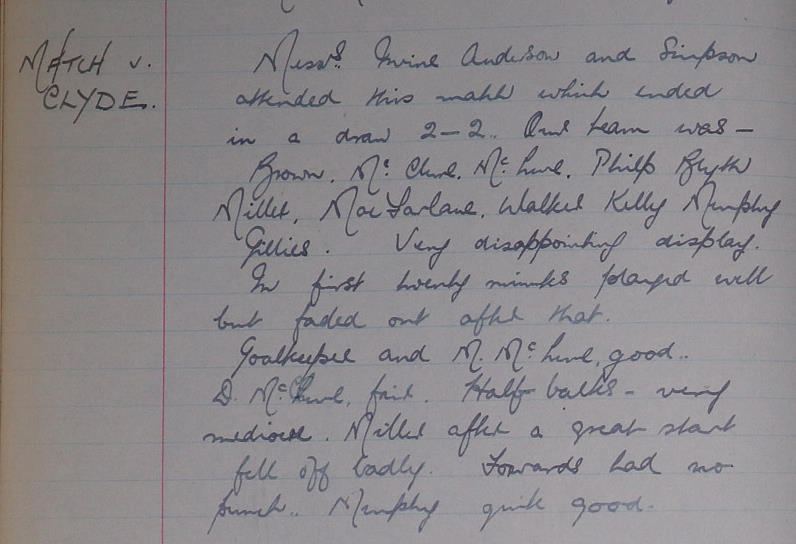 MATCH v.
CLYDE.
Messrs. Irvine Anderson and Simpson
attended this match which ended
in a draw 2-2. Our team was -
Brown, Mc Clure, Mc Lure, Philp Blyth
Miller, MacFarlane, Walker Kelly Murphy
Gillies. Very disappointing display.
In first twenty minutes played well
but faded out after that.
Goalkeeper and M. Mc Lure, good..
D. Mc Clure, fair. Half-backs - very
mediocre. Miller after a great start
fell off badly. Forwards had no
punch.. Murphy quite good.